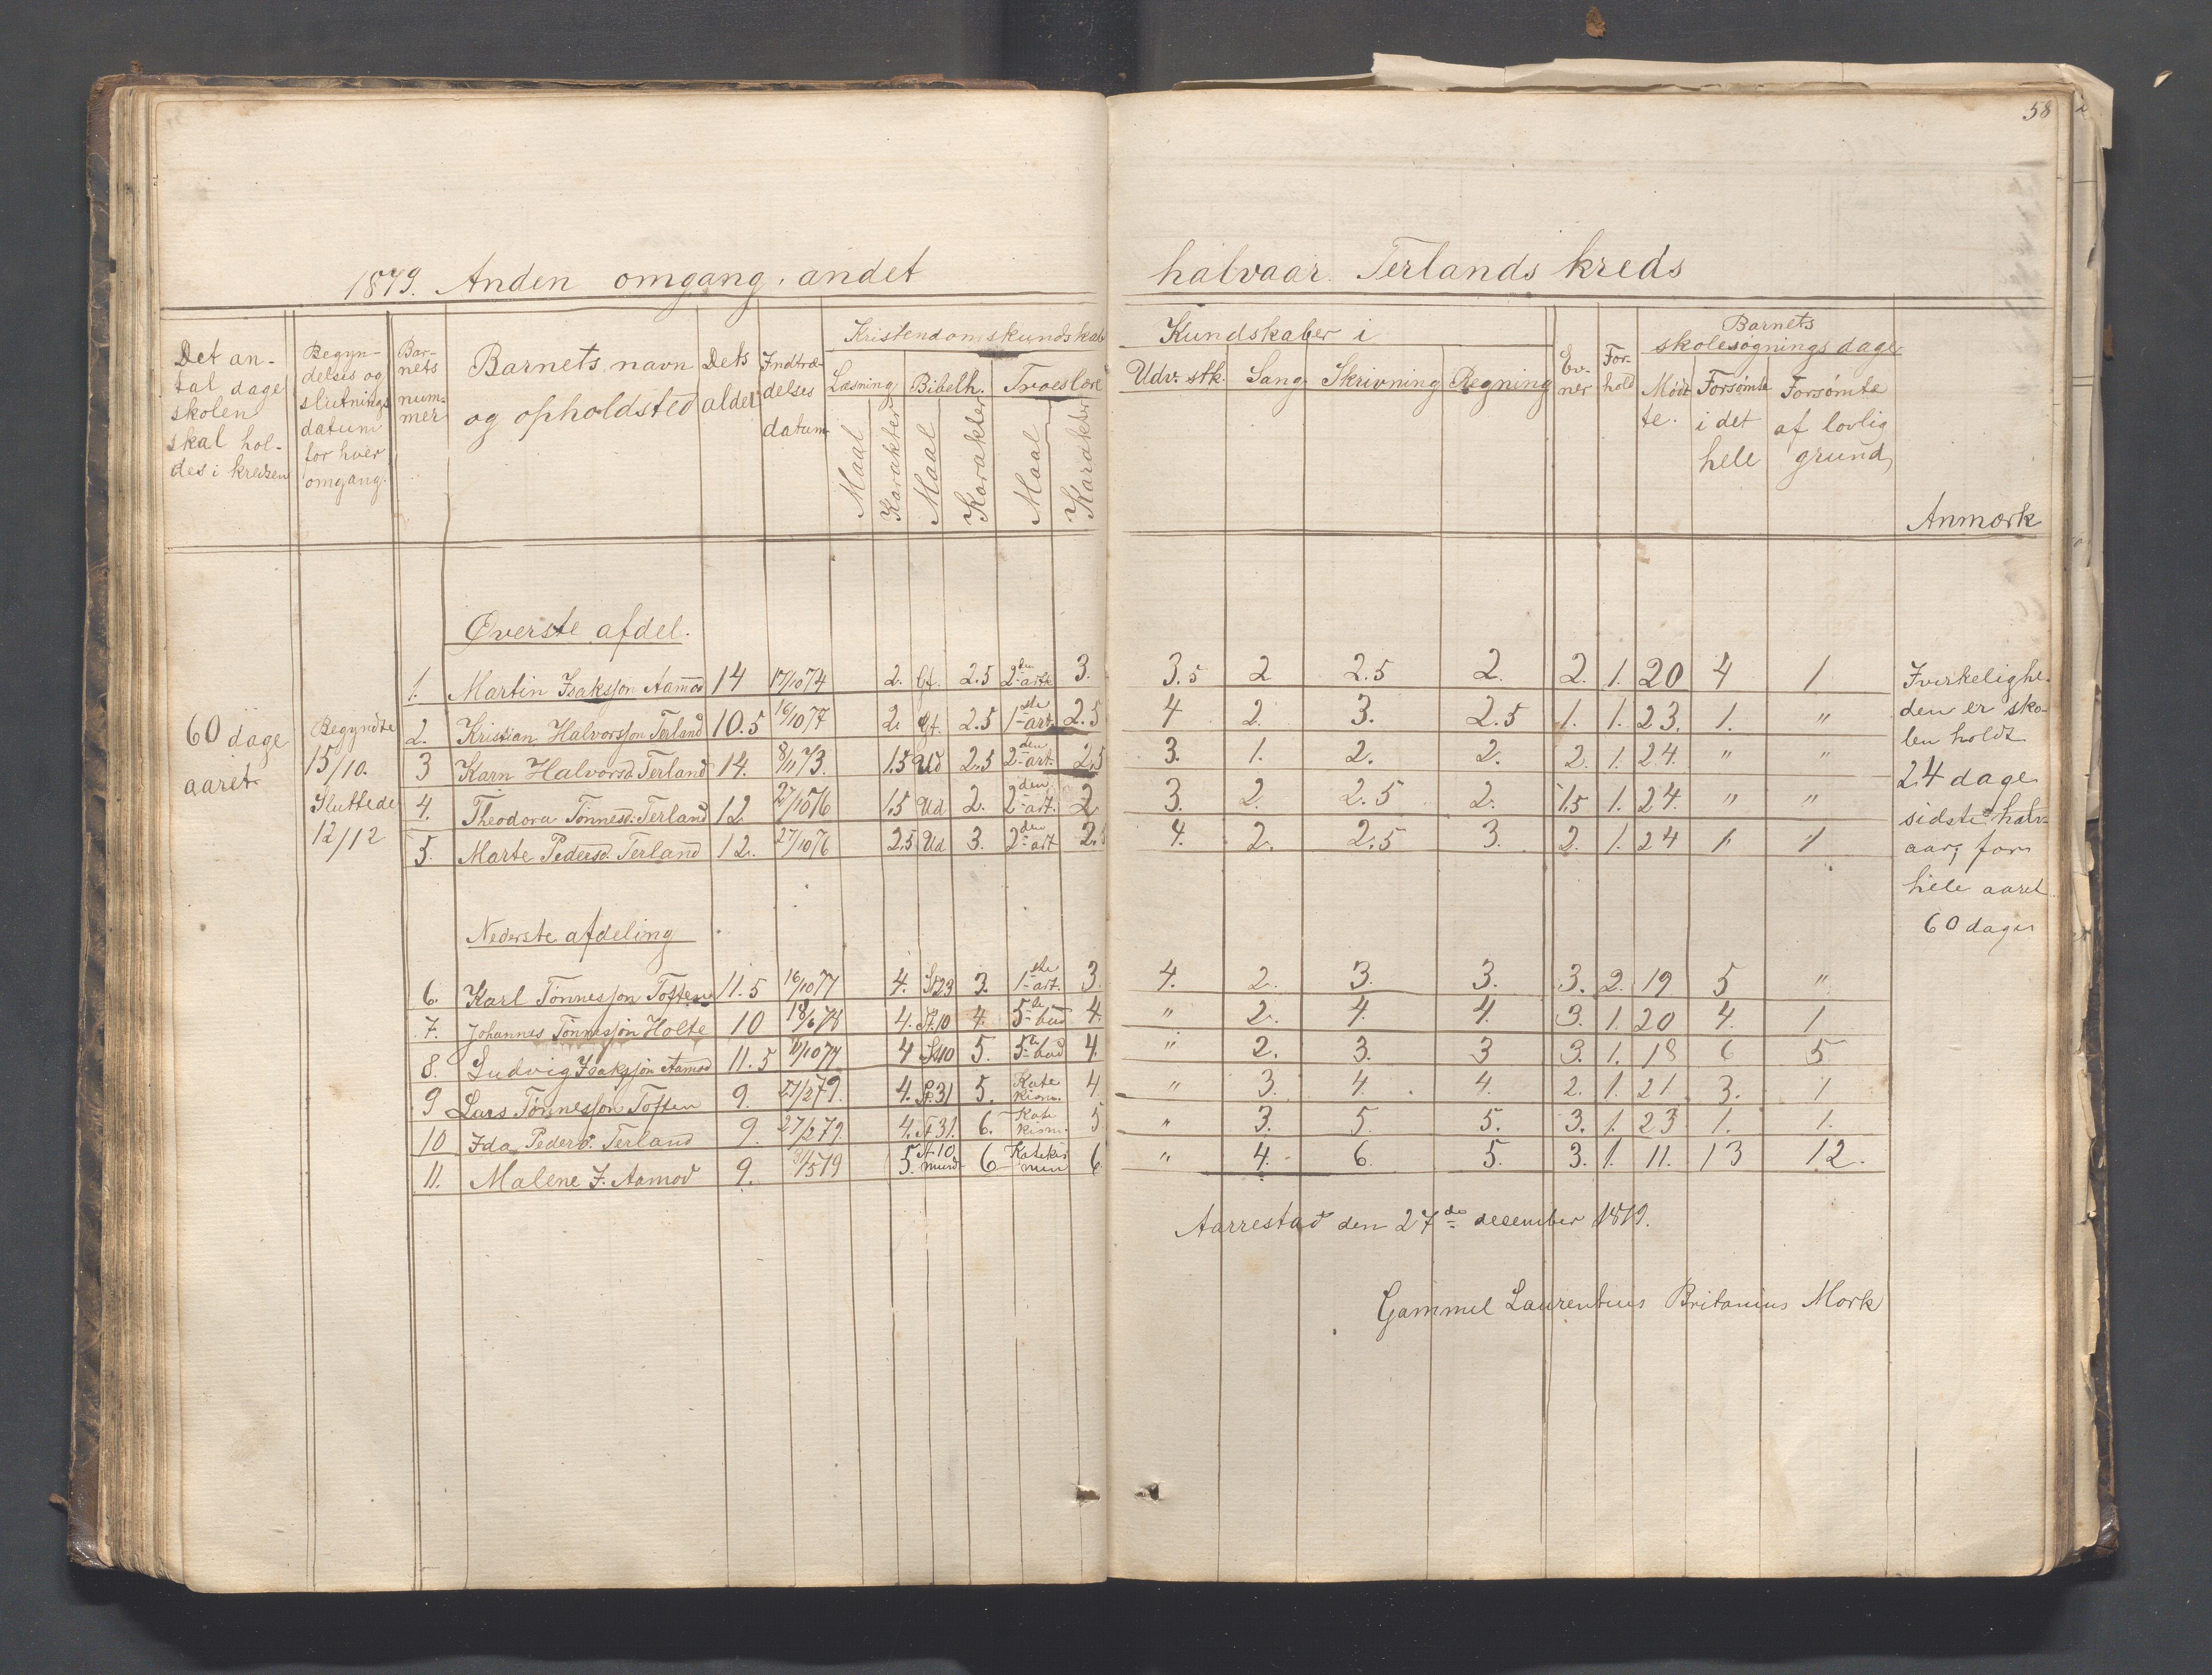 58
1879. Anden omgang, andet halvaar. Terlands kreds
Det an-
tal dage
skolen
skal hol-
des i kredsen
Begyn-
delses og
slutnings
datum
for hver
omgang.
Bar-
nets
num-
mer
Barnets navn
og opholdsted
Dets
alder
Indtræ-
delses
datum
Kristendomskundskab
Læsning Bibelh. Troeslære
Maal Karakter Maal Karakter Maal Karakter
Kundskaber i
Udv. stk. Sang Skrivning Regning
Ev-
ner
For-
hold
Barnets
skolesøgnings dage
Mødt
te.
Forsømte
i det
hele
Forsømte
af lovlig
grund
Anmærk
Øverste afdel.
1. Martin Isaksson Aamod 14 17/10 74 2. Gf. 2.5 2den art. 3. 3.5 2 2.5 2. 2. 1. 20 4 1
2. Kristian Halvorsson Terland 10.5 16/10 77 2. Gf. 2.5 1ste art. 2.5 4 2. 3. 2.5 1. 1. 23. 1. "
3 Karn Halvorsd. Terland 14. 8/11 73. 1.5 Ud 2.5 2den art. 2.5 3. 1. 2. 2. 2. 1. 24. " "
4. Theodora Tønnesd. Terland 12 27/10 76 1.5 Ud 2. 2den art. 2 3. 2. 2.5 2. 1.5 1. 24. " "
5. Marte Pedersd. Terland 12. 27/10 76 2.5 Ud 3. 2den art 2.5 4. 2. 2.5 3. 2. 1. 24 " "
60 dage
aaret
Begyndte
15/10.
Sluttede
12/12
Nederste afdeling
6. Karl Tønnesson Toften 11.5 16/10 77 4. St 23 3. 1ste art. 3. 4. 2. 3. 3. 3. 2. 19 5 "
7. Johannes Tønnesson Holte 10 18/6 78 4. St. 10 4. 5te bud 4. " 2. 4. 4. 3. 1. 20 4. 1
8. Ludvig Isaksson Aamod 11.5 4 St 10 5. 5te bud 4. " 2. 3. 3 3. 1. 18 6 5
9 Lars Tønnesson Toften 9. 27/2 79. 4. St. 31 5. Kate kism. 4 " 3. 4. 4. 2. 1. 21 3. 1
10 Ida Pedersd. Terland 9. 27/2 79. 4. St 31. 6. Kate kism. 5 " 3. 5. 5. 3. 1. 23 1. 1.
11. Malene I. Aamod 9. 5. St. 10 mund 6 Katekis mun 6 " 4. 6. 5. 3. 1. 11. 13 12.
I virkelighe-
den er sko-
len holdt
24 dage
sidste halv-
aar, for
hele aaret
60 dage
Aarrestad den 27de december 1879.
Gammel Laurentius Britanius Mork